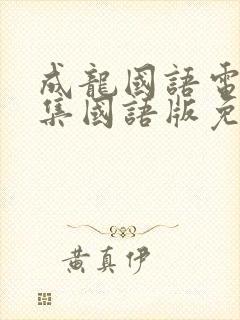 成龍國語電
集國語版免
黃真伊